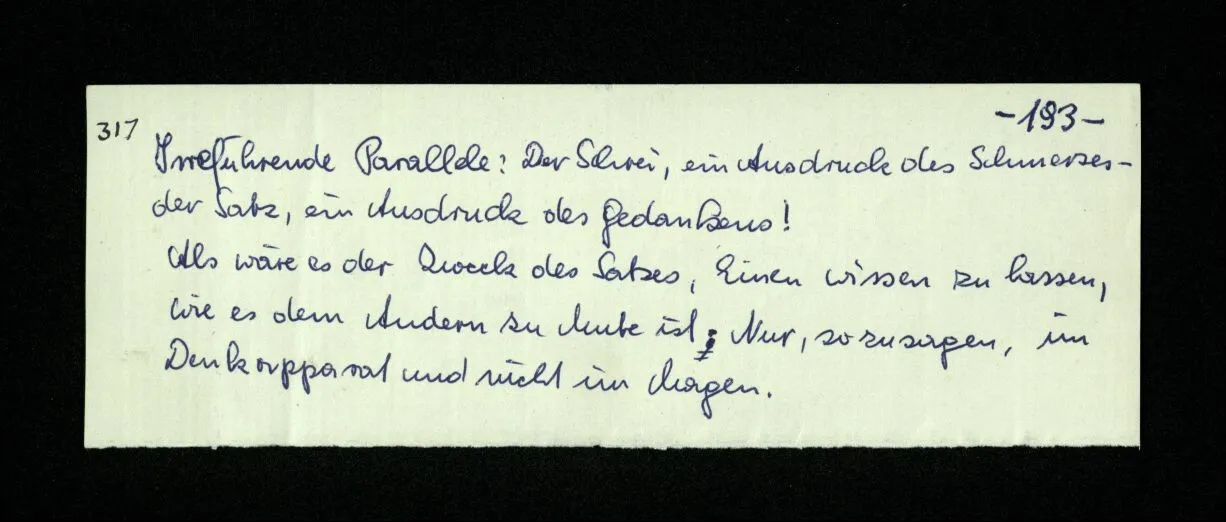 -193-
317
Irreführende Parallele: Der Schrei, ein Ausdruck des Schmerzes-
der Satz, ein Ausdruck des Gedankens!
Als wäre es der Zweck des Satzes, Einen wissen zu lassen,
wie es dem Andern zu Mute ist: Nur, sozusagen, im
Denkapparat und nicht im Magen.